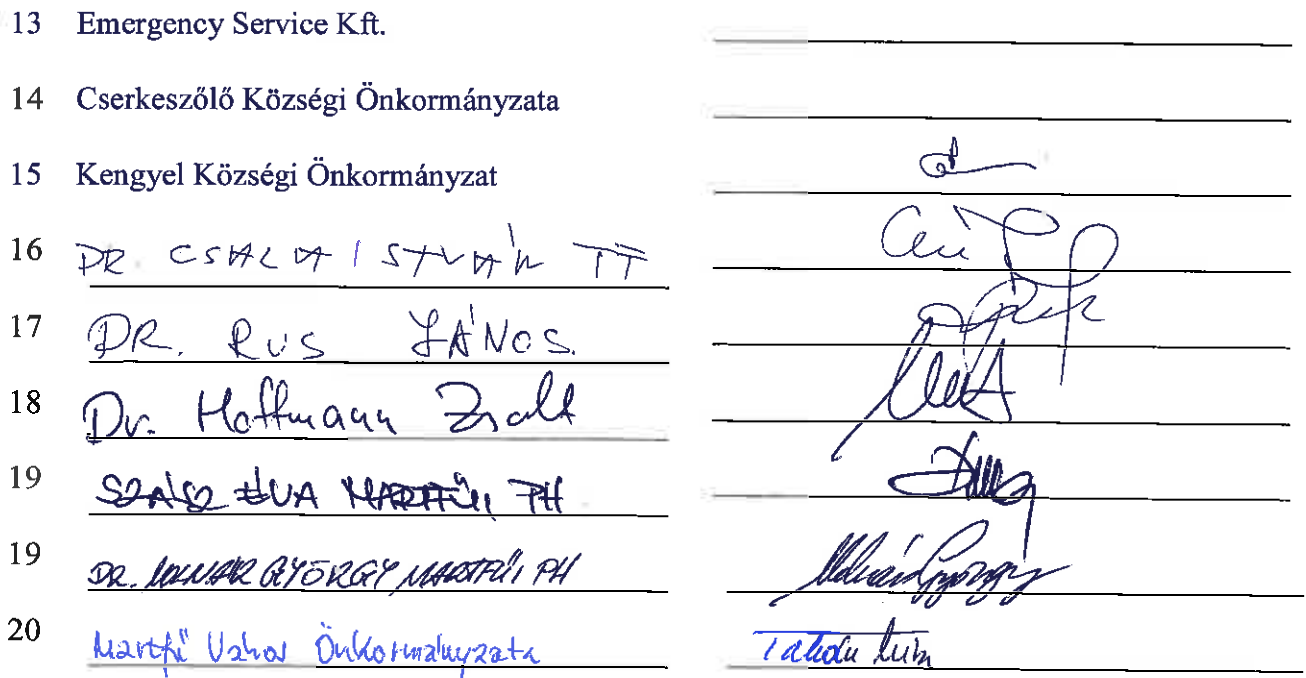 13 Emergency Service Kft.
14 Cserkeszőlő Községi Önkormányzata
15 Kengyel Községi Önkormányzat
16 DR. CSALA ISTVÁN TT
17 DR. RUS JÁNOS.
18 Dr. Hoffmann Zsolt
19 SZÁSZ ÉVA MARTFŰI PH
19 DR. MOLNÁR GYÖRGY MARTFŰI PH Molnár György
20 Martfű Város Önkormányzata